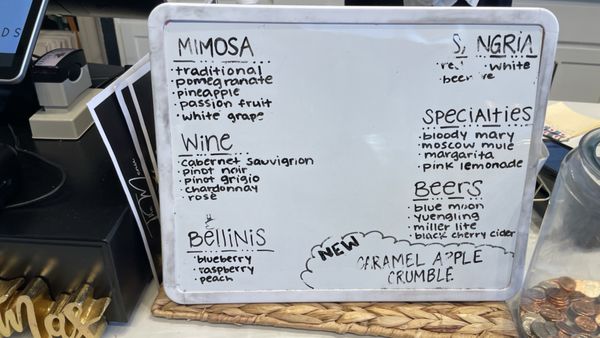 MIMOSA
• traditional
pomegranate
• pineapple
• passion fruit
• white grape
Wine
• cabernet sauvignon
• pinot noir
• pinot grigio
• chardonnay
• rosé
Bellinis
• blueberry
• raspberry
• peach
white
Specialties
• bloody mary
• moscow mule
• margarita
• pink lemonade
Beers
• blue moon
• yuengling
• miller lite
• black cherry cider
NEW
CARAMEL APPLE
CRUMBLE